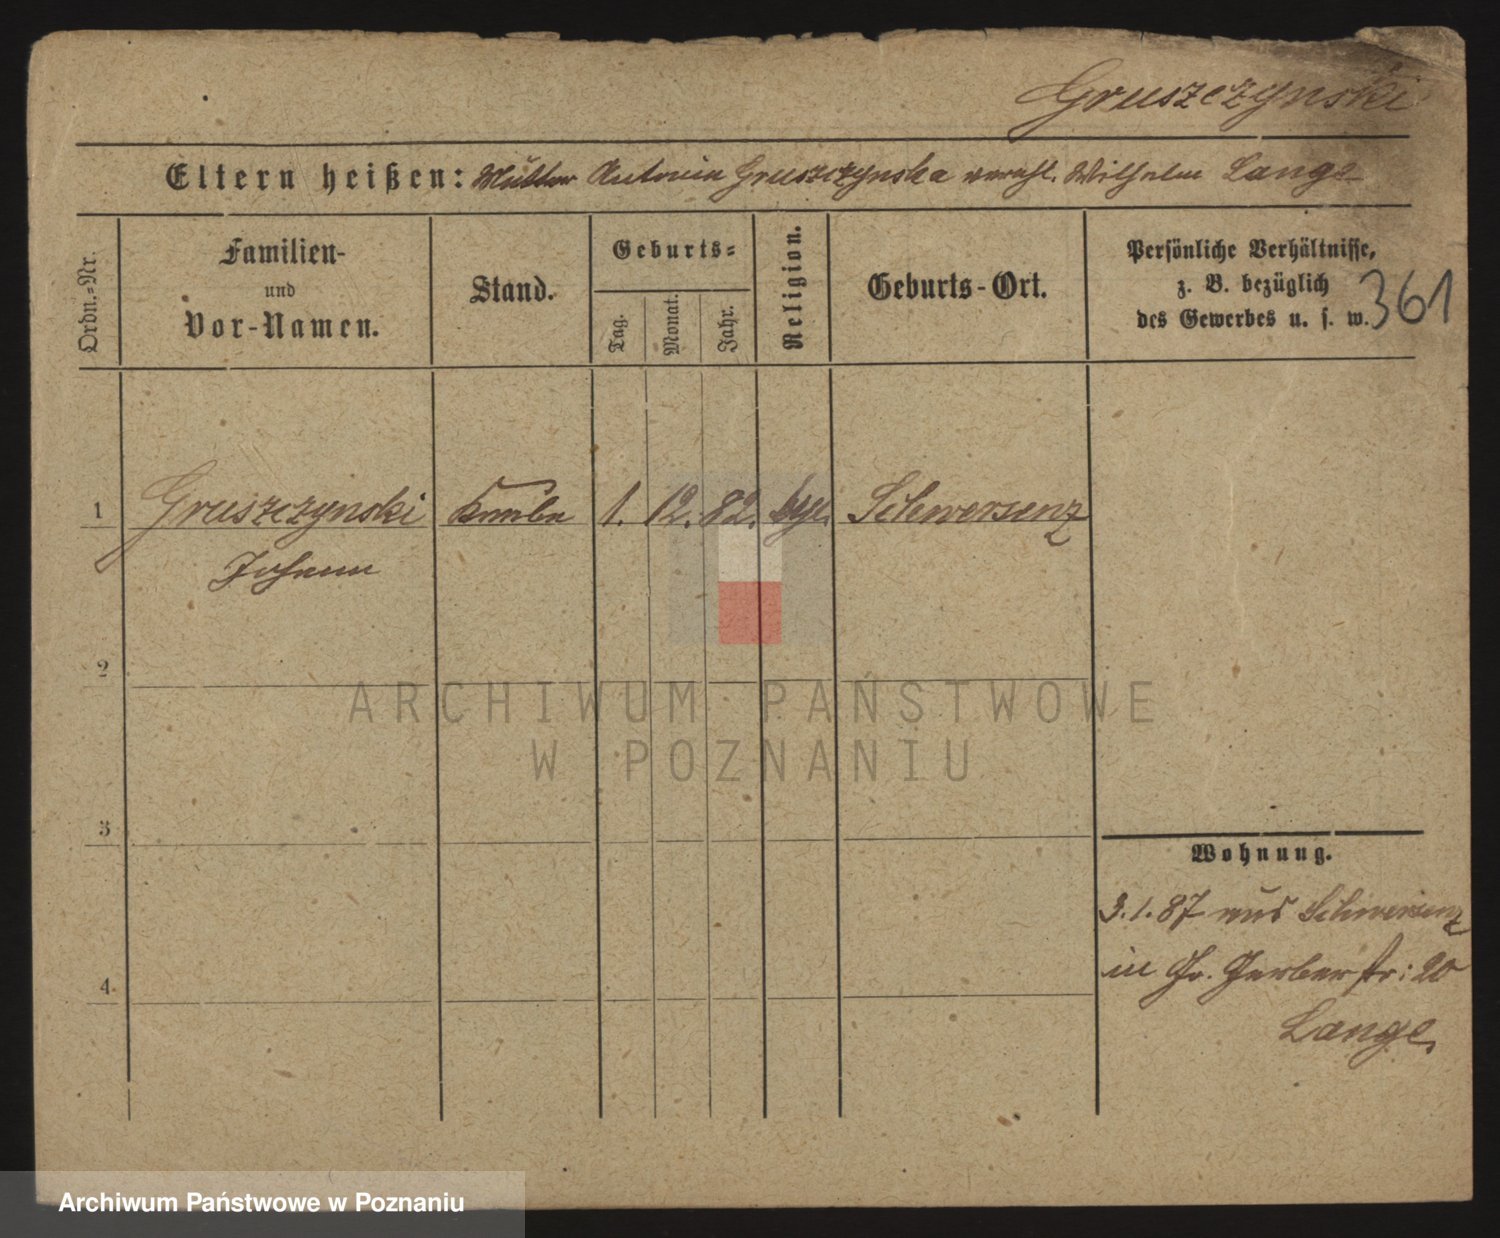 Gruszczynski
Eltern heißen: Mutter Antonie Gruszczynska verehl. Wilhelm Lange
Ordn.=Nr.
Familien-
und
Vor-Namen.
Stand.
Geburts=
Tag.
Monat.
Jahr.
Religion.
Geburts-Ort.
Persönliche Verhältnisse,
z. B. bezüglich
des Gewerbes u. s. w.
361
1 Gruszczynski Knabe 1. 12. 82. Schwersenz
Johann
2
3
4
Wohnung.
3.1.87 aus Schwersenz
in Gr. Gerberstr: 20
Lange
ARCHIWUM PAŃSTWOWE
W POZNANIU
Archiwum Państwowe w Poznaniu